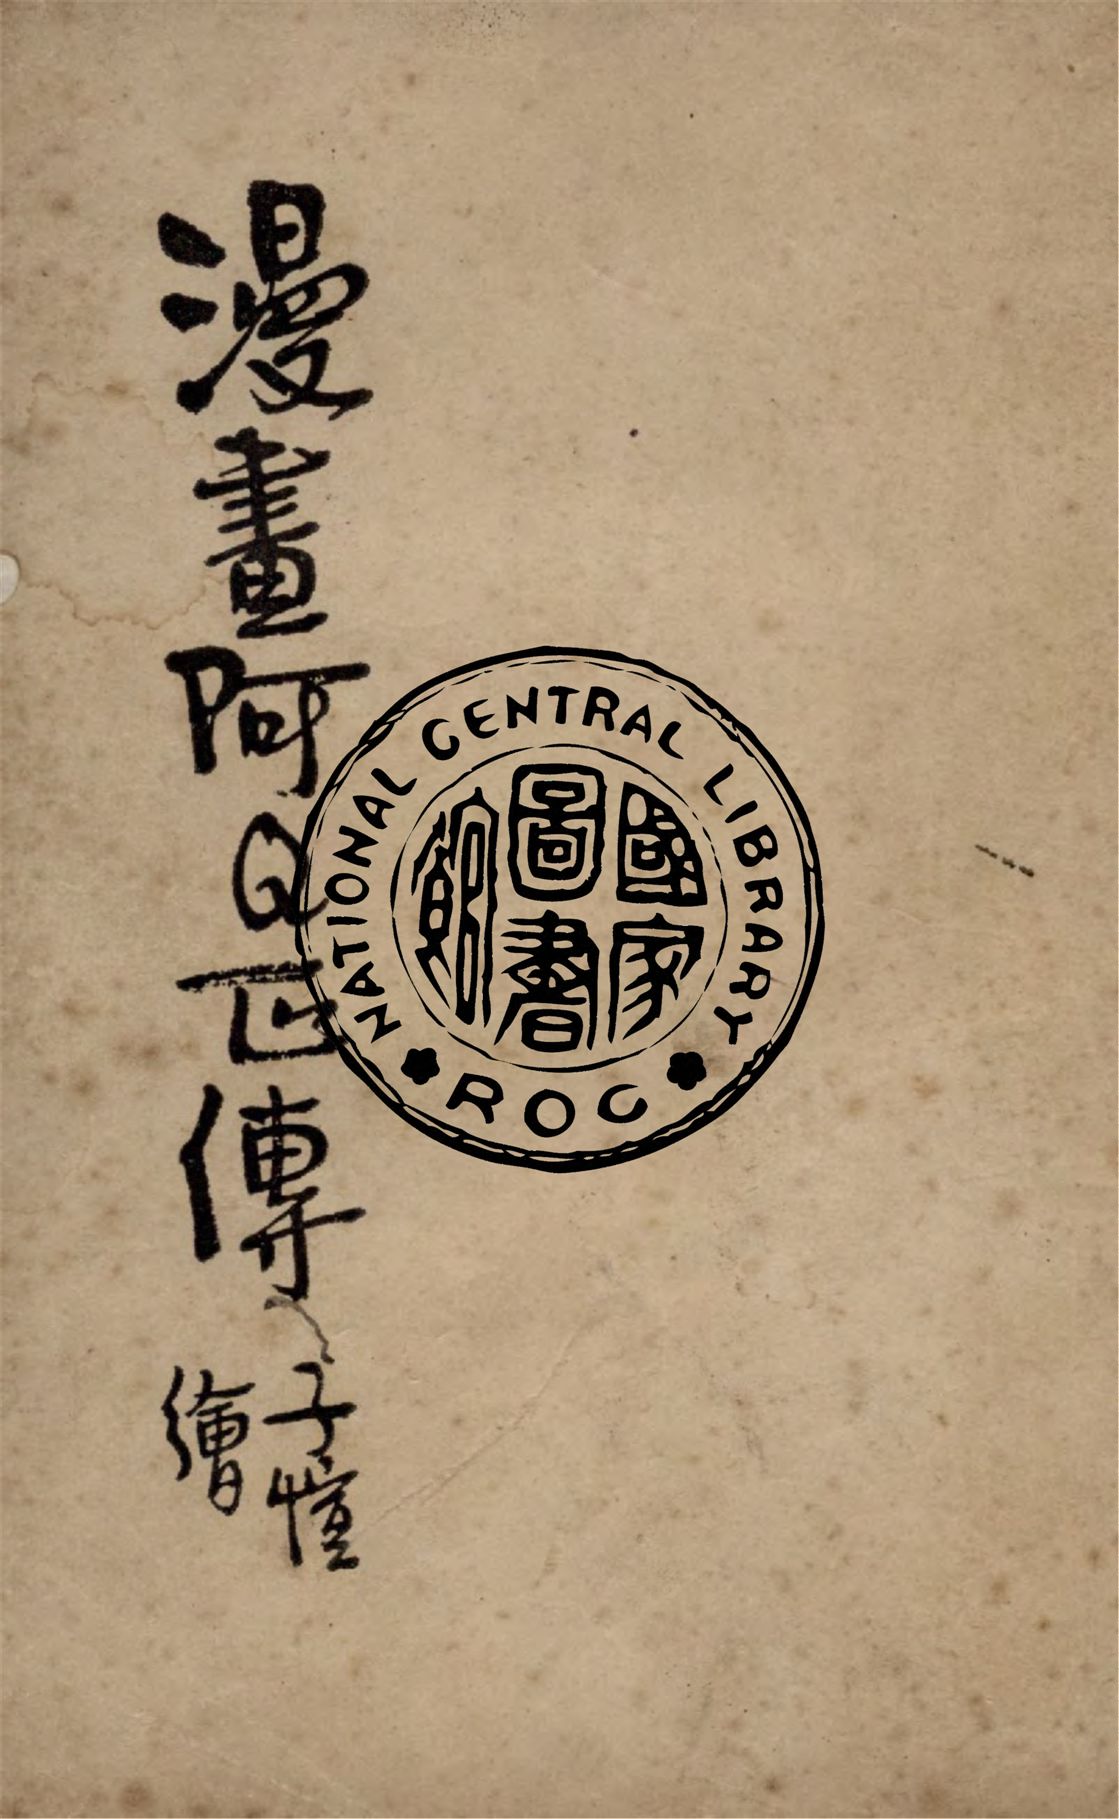 漫畫阿Q正傳
子愷
繪
NATIONAL CENTRAL LIBRARY
國家
圖書
館
ROC